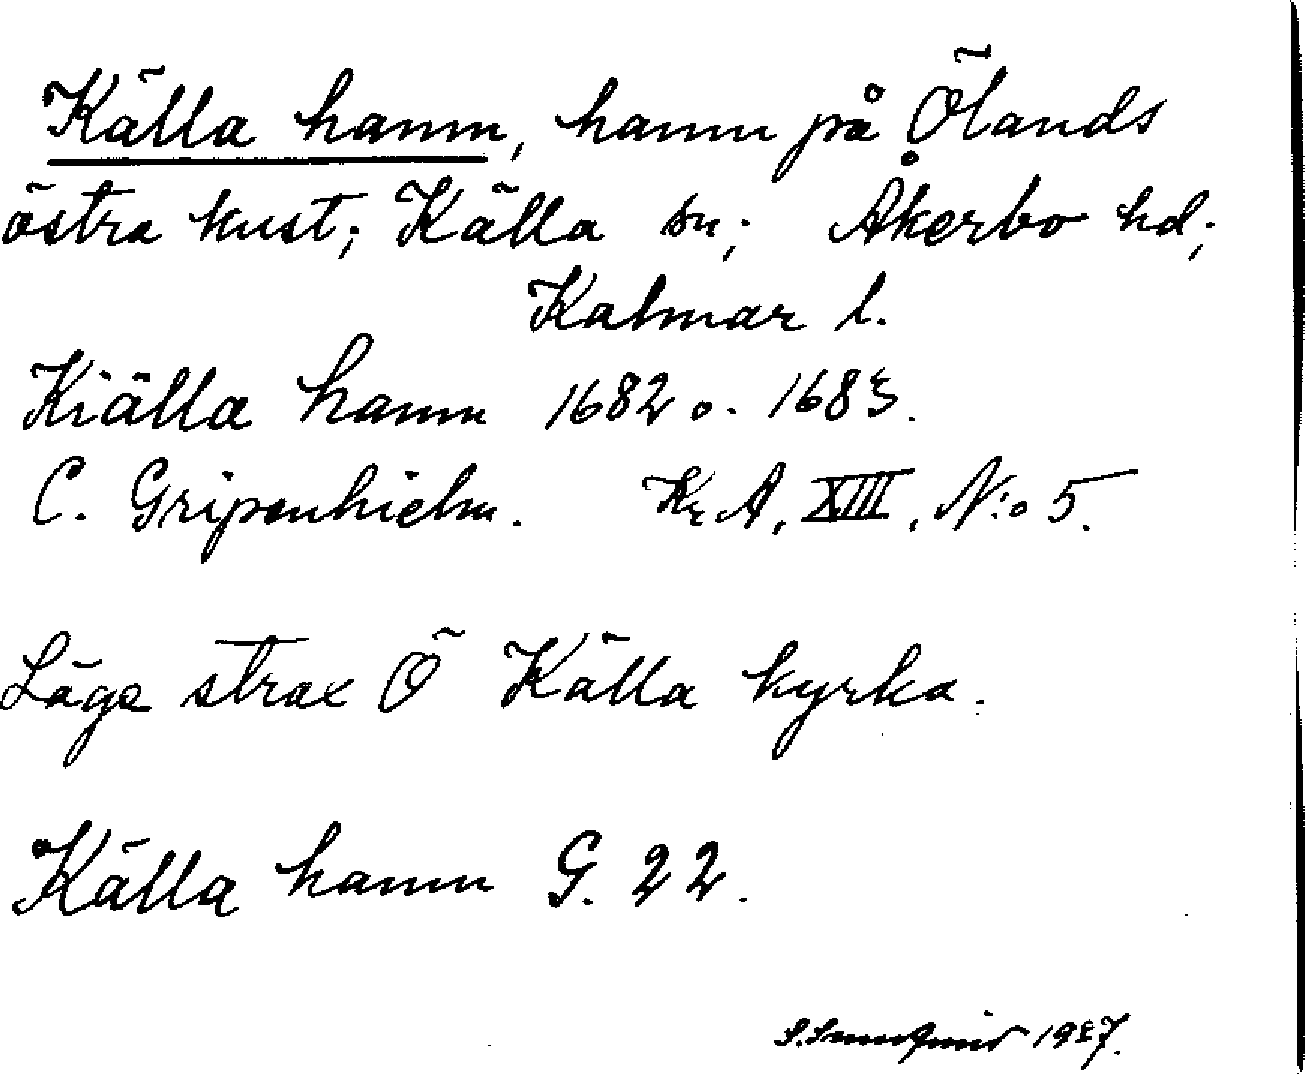 Källa hamn, hamn på Ölands
östra kust; Källa sn; Åkerbo hd;
Kalmar l.
Kiälla hamn 1682 o. 1683.
C. Gripenhielm. Kr A, XIII, N:o 5.
Läge strax Ö Källa kyrka.
Källa hamn G. 22.
1927.